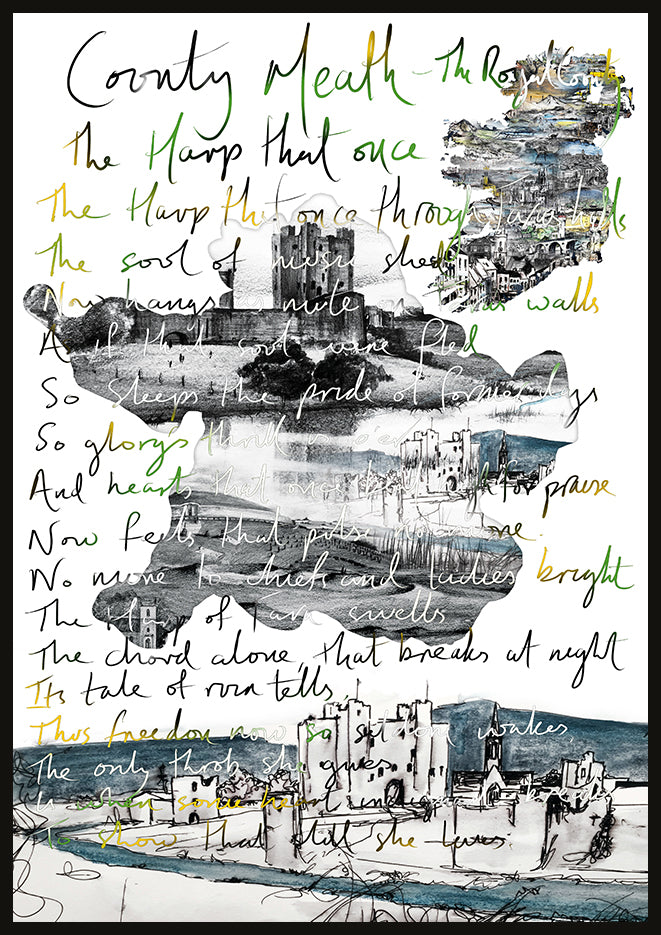 County Meath - The Royal County
The Harp that once
The Harp that once through Tara's halls
The soul of music shed
Now hangs as mute on Tara's walls
As if that soul were fled
So sleeps the pride of former days
So glory's thrill is o'er
And hearts that once beat high for praise
Now feels that pulse no more
No more to chiefs and ladies bright
The Harp of Tara swells
The chord alone, that breaks at night
Its tale of ruin tells
Thus freedom now so seldom wakes
The only throb she gives
Is when some heart indignant breaks
To show that still she lives